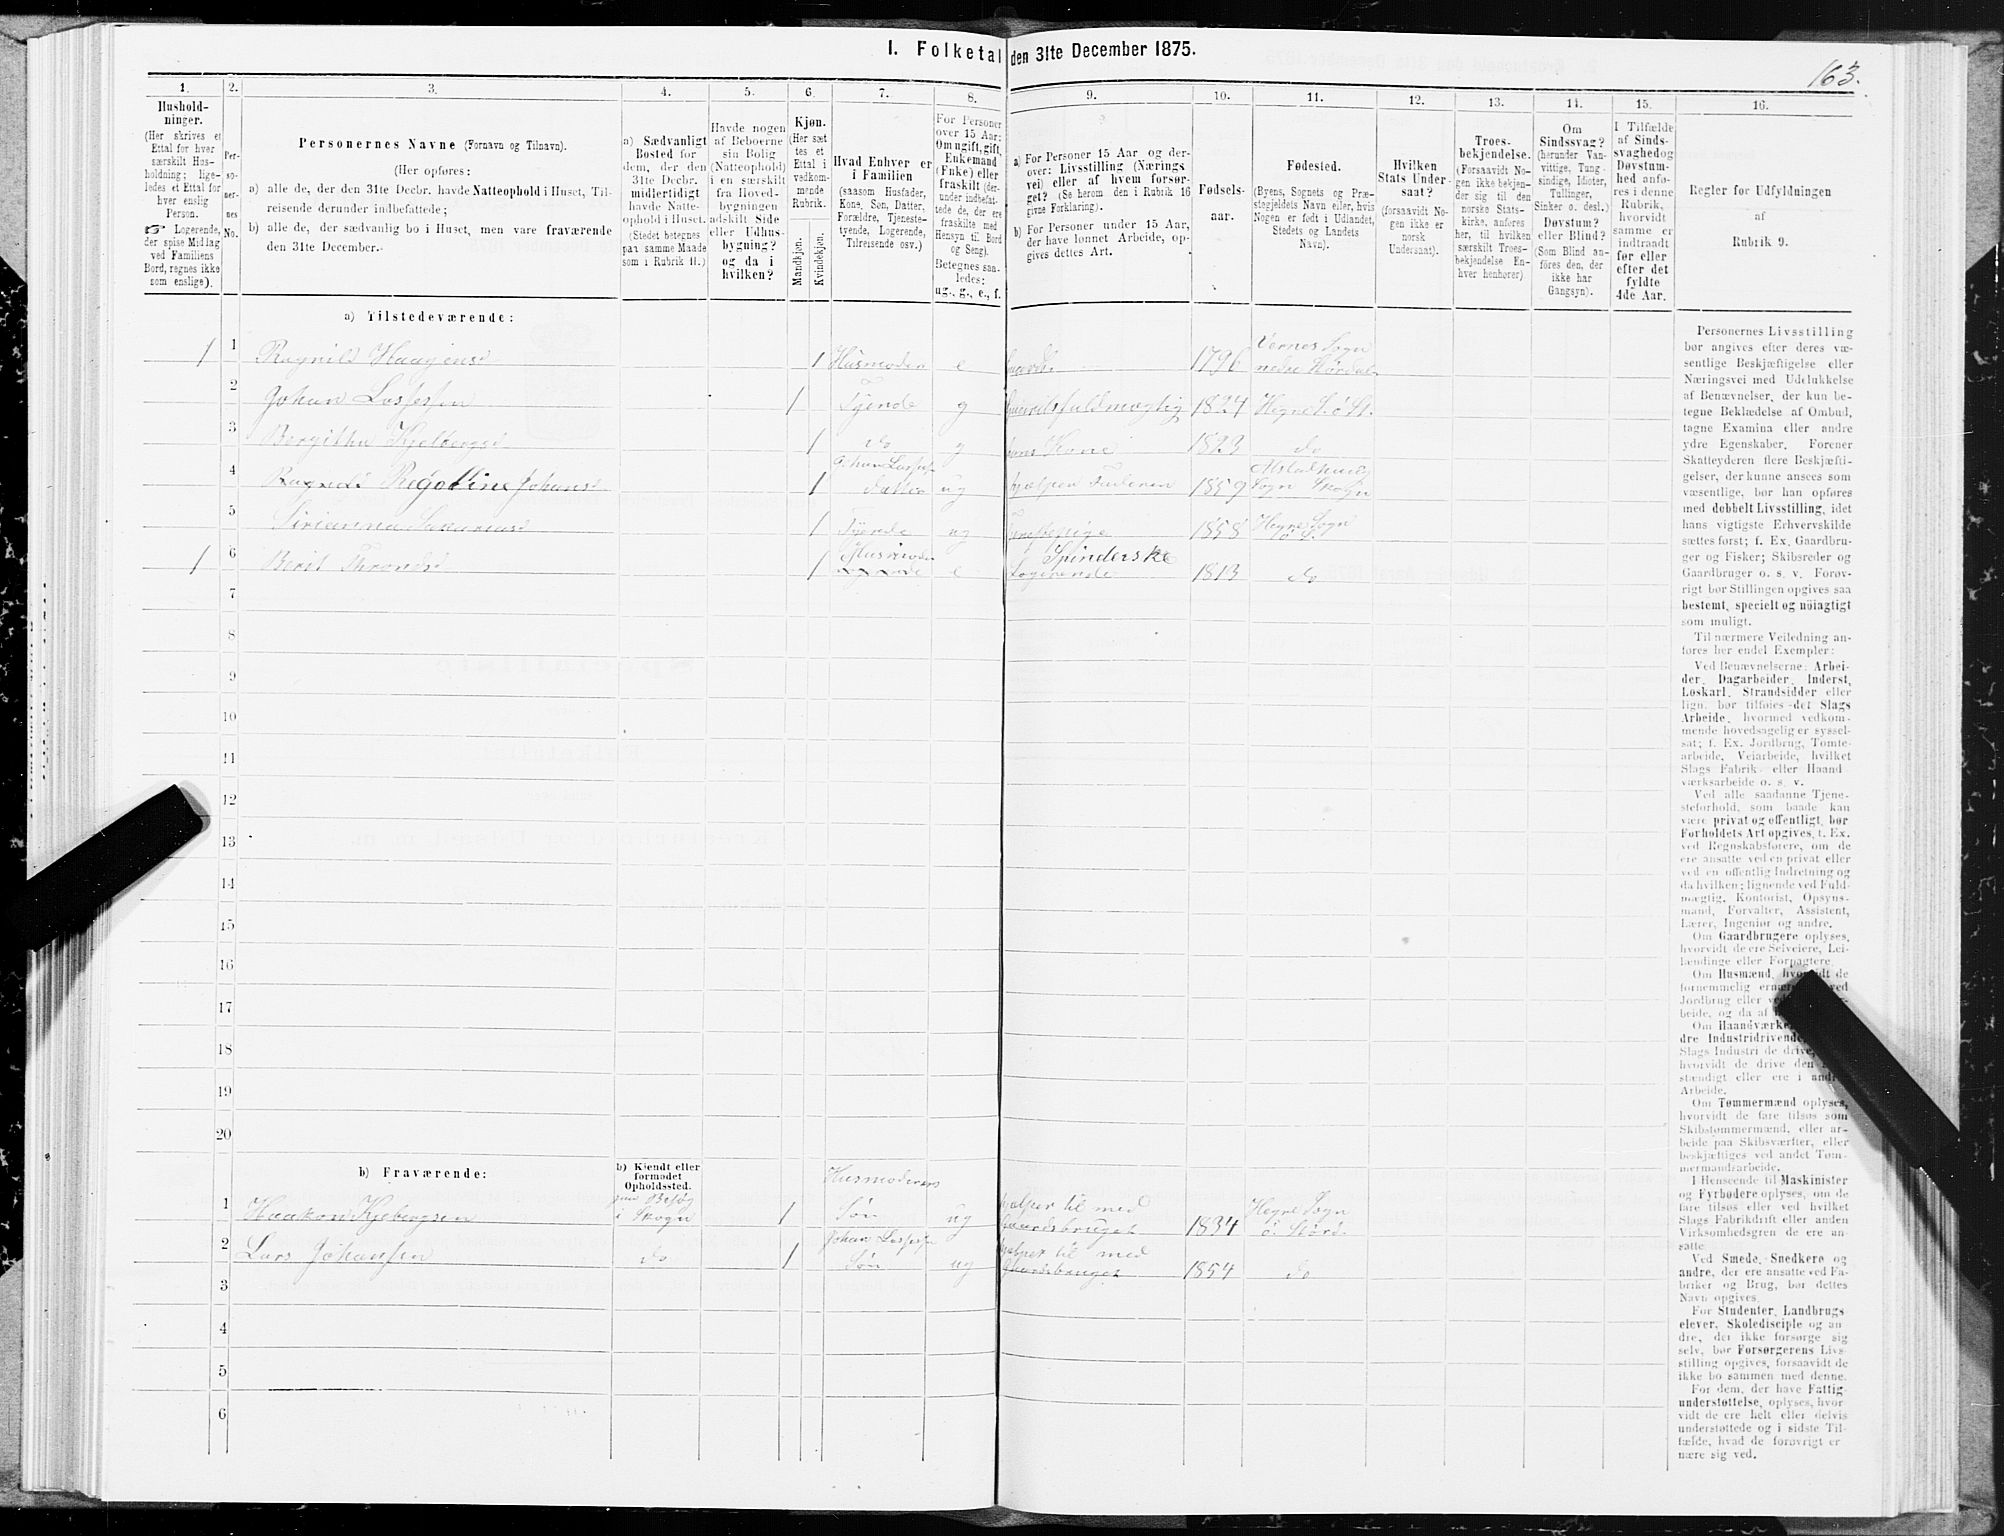 I. Folketal den 31te December 1875.
163.
1.
Hushold-
ninger.
(Her skrives et
Ettal for hver
særskilt Hus-
holdning; lige-
ledes et Ettal for
hver enslig
Person.
☞ Logerende,
der spise Middag
ved Familiens
Bord, regnes ikke
som enslige).
2.
Per-
so-
ner-
nes
No.
3.
Personernes Navne (Fornavn og Tilnavn).
(Her opføres:
a) alle de, der den 31te Decbr. havde Natteophold i Huset, Til-
reisende derunder indbefattede;
b) alle de, der sædvanlig bo i Huset, men vare fraværende
den 31te December.
4.
a) Sædvanligt
Bosted for
dem, der den
31te Decbr.
midlertidigt
havde Natte-
ophold i Huset.
(Stedet betegnes
paa samme Maade
som i Rubrik 11.)
5.
Havde nogen
af Beboerne
sin Bolig
(Natteophold)
i en særskilt
fra Hoved-
bygningen
adskilt Side
eller Udhus-
bygning?
og da i
hvilken?
6.
Kjøn.
(Her sæt-
tes et
Ettal i
vedkom-
mende
Rubrik.
Mandkjøn.
Kvindekjøn.
7.
Hvad Enhver er
i Familien
(saasom Husfader,
Kone, Søn, Datter,
Forældre, Tjeneste-
tyende, Logerende,
Tilreisende osv.)
8.
For Personer
over 15 Aar:
Om ugift, gift,
Enkemand
(Enke) eller
fraskilt (der-
under indbefat-
tede de, der ere
fraskilte med
Hensyn til Bord
og Seng).
Betegnes saa-
ledes:
ug., g., e., f.
9.
a) For Personer 15 Aar og der-
over: Livsstilling (Nærings-
vei) eller af hvem forsør-
get? (Se herom den i Rubrik 16
givne Forklaring).
b) For Personer under 15 Aar,
der have lønnet Arbeide, op-
gives dettes Art.
10.
Fødsels-
aar.
11.
Fødested.
(Byens, Sognets og Præ-
stegjeldets Navn eller, hvis
Nogen er født i Udlandet,
Stedets og Landets
Navn).
12.
Hvilken
Stats Under-
saat?
(forsaavidt No-
gen ikke er
norsk
Undersaat).
13.
Troes-
bekjendelse.
(Forsaavidt No-
gen ikke bekjen-
der sig til den
norske Stats-
kirke, anføres
her, til hvilken
særskilt Troes-
bekjendelse En-
hver henhører)
14.
Om
Sindssvag?
(herunder Van-
vittige, Tung-
sindige, Idioter,
Tullinger,
Sinker o. desl.)
Døvstum?
eller Blind?
(Som Blind an-
føres den, der
ikke har
Gangsyn).
15.
I Tilfælde
af Sinds-
svaghed og
Døvstum-
hed anfø-
res i denne
Rubrik,
hvorvidt
samme er
indtraadt
før eller
efter det
fyldte
4de Aar.
16.
Regler for Udfyldningen
af
Rubrik 9.
a) Tilstedeværende:
1 1 Ragnild Haagensd 1 Husmoder e 1796 Værnes Sogn nedre Størdal
2 Johan Lassesen 1 Tyende g 1824 Hegne S. ö St.
3 Bergitha Kjelbergsd 1 do g hans Kone 1823 do
4 Regoline Johansd 1 Johan Lasses datter ug hjelper Faderen 1859 Alstadhaug Sogn Skogn
5 1 Tyende ug 1858 Hegne Sogn
1 6 Berit Throndsd 1 Husmoder e Spinderske Logerende 1813 do
7
8
9
10
11
12
13
14
15
16
17
18
19
20
b) Fraværende:
b) Kjendt eller
formodet
Opholdssted.
1 Haakon Kjebergsen paa Besøg i Skogn 1 Husmoderens Søn ug hjelper til med Gaardsbruget 1834 Hegne Sogn ö. Størd.
2 Lars Johansen do 1 Johan Lasses Søn ug hjelper til med Gaardsbruget 1854 do
3
4
5
6
Personernes Livsstilling
bør angives efter deres væ-
sentlige Beskjæftigelse eller
Næringsvei med Udelukkelse
af Benævnelser, der kun be-
tegne Beklædelse af Ombud,
tagne Examina eller andre
ydre Egenskaber. Forener
Skatteyderen flere Beskjæfti-
gelser, der kunne ansees som
væsentlige, bør han opføres
med dobbelt Livsstilling, idet
hans vigtigste Erhvervskilde
sættes først; f. Ex. Gaardbru-
ger og Fisker; Skibsreder og
Gaardbruger o. s. v. Forøv-
rigt bør Stillingen opgives saa
bestemt, specielt og nöiagtigt
som muligt.
Til nærmere Veiledning an-
føres her endel Exempler:
Ved Benævnelserne: Arbei-
der, Dagarbeider, Inderst,
Løskarl, Strandsidder eller
lign. bør tilføies det Slags
Arbeide, hvormed vedkom-
mende hovedsagelig er syssel-
sat; f. Ex. Jordbrug, Tomte-
arbeide, Veiarbeide, hvilket
Slags Fabrik- eller Haand-
værksarbeide o. s. v.
Ved alle saadanne Tjene-
steforhold, som baade kan
være privat og offentligt, bør
Forholdets Art opgives, f. Ex.
ved Regnskabsførere, om de
ere ansatte ved en privat eller
ved en offentlig Indretning og
da hvilken; lignende ved Fuld-
mægtig, Kontorist, Opsyns-
mand, Forvalter, Assistent,
Lærer, Ingeniør og andre.
Om Gaardbrugere oplyses,
hvorvidt de ere Selveiere, Lei-
lændinge eller Forpagtere.
Om Husmænd, hvorvidt de
fornemmelig
Jordbrug eller
beide, og da af
Om Haandværkere
dre Industridrivende
Slags Industri de drive,
hvorvidt de drive den
stændigt eller ere i andres
Arbeide.
Om Tømmermænd oplyses,
hvorvidt de fare tilsøs som
Skibstømmermænd, eller ar-
beide paa Skibsværfter, eller
beskjæftiges ved andet Tøm-
mermandsarbeide.
I Henseende til Maskinister
og Fyrbødere oplyses, om de
fare tilsøs eller ved hvilket
Slags Fabrikdrift eller anden
Virksomhedsgren de ere an-
satte.
Ved Smede, Snedkere og
andre, der ere ansatte ved Fa-
briker og Brug, bør dettes
Navn opgives.
For Studenter, Landbrugs-
elever, Skoledisciple og an-
dre, der ikke forsørge sig
selv, bør Forsørgerens Livs-
stilling opgives, forsaavidt de
ikke bo sammen med denne.
For dem, der have Fattig-
understøttelse, oplyses, hvor-
vidt de ere helt eller delvis
understøttede og i sidste Til-
fælde, hvad de forøvrigt er-
nære sig ved.